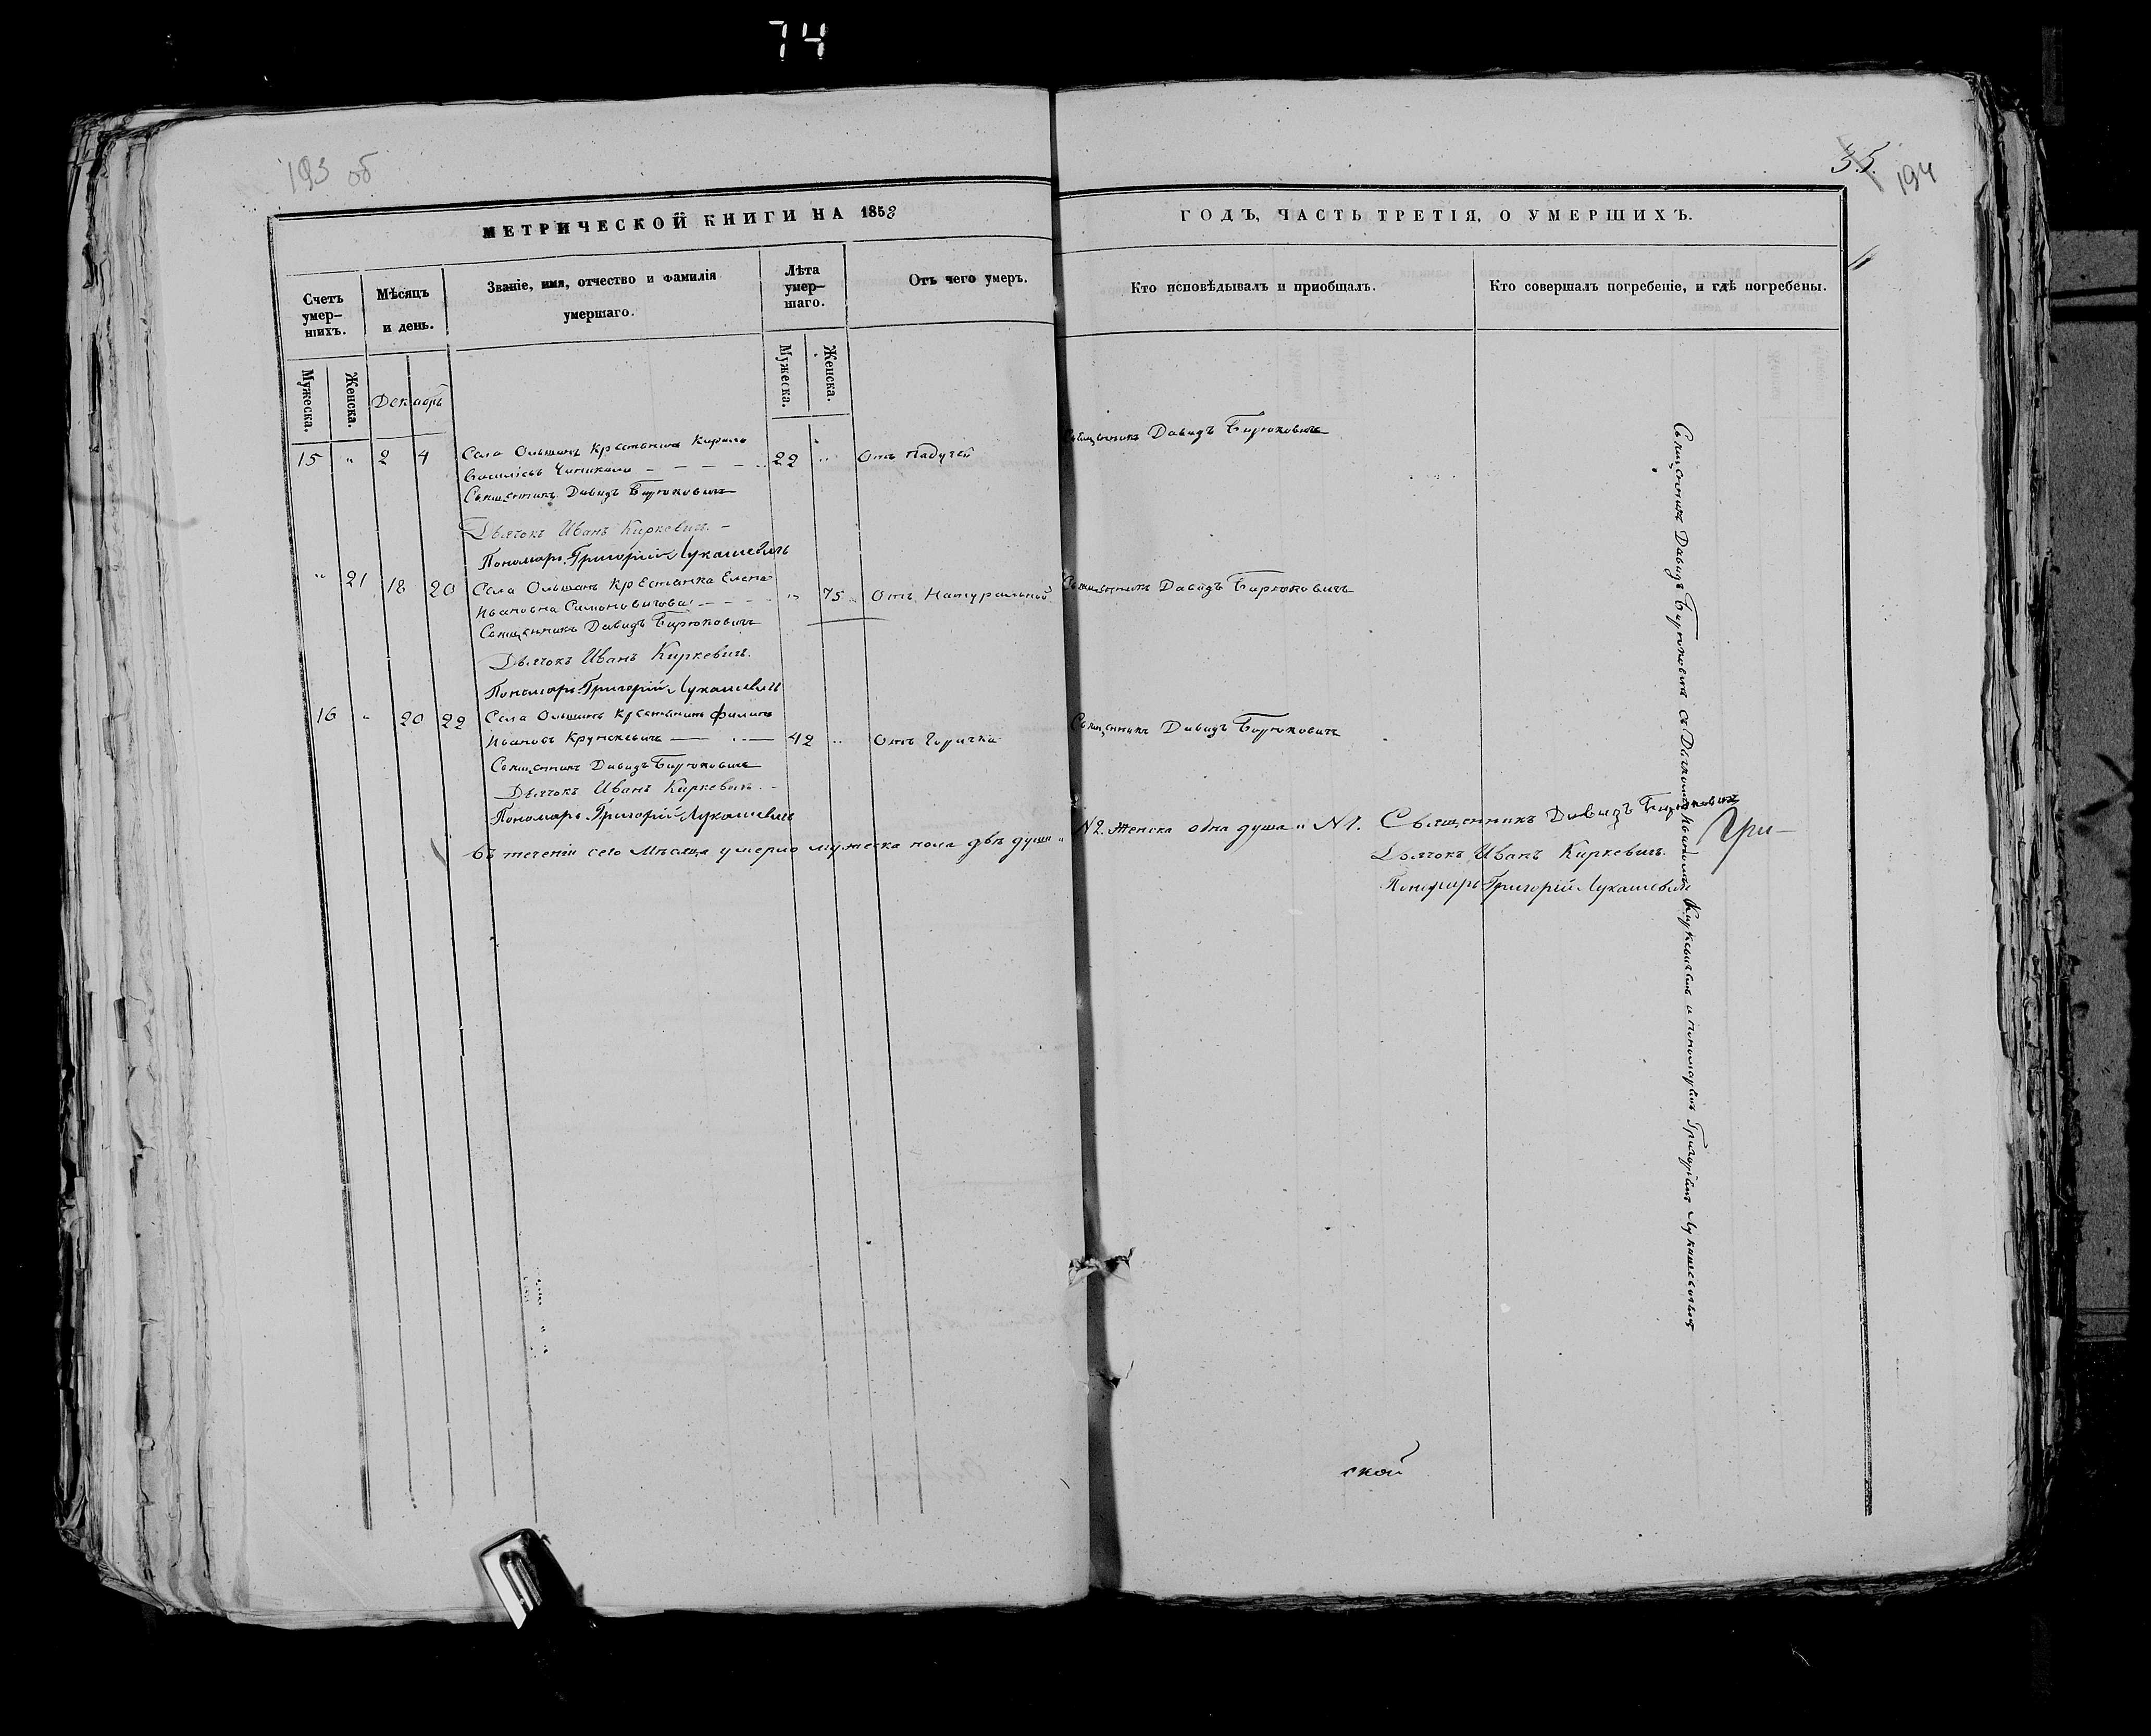 74
193 об
35.
194
МЕТРИЧЕСКОЙ КНИГИ НА 1853
ГОДЪ, ЧАСТЬ ТРЕТІЯ, О УМЕРШИХЪ.
Счетъ умер-
шихъ.
Мѣсяцъ
и день.
Званіе, имя, отчество и фамилія
умершаго.
Лѣта
умер-
шаго.
Отъ чего умеръ.
Кто исповѣдывалъ и приобщалъ.
Кто совершалъ погребеніе, и гдѣ погребены.
Мужеска.
Женска.
Декабрь
Мужеска.
Женска.
15 " 2 4 Села Ольшанъ Крестьянинъ Кирило
Васильевъ - - - - 22 " Отъ падучей
Священникъ Давидъ Бирюковичъ
Священникъ Давидъ Бирюковичъ
Дьячокъ Иванъ Киркевичъ. -
Пономарь Григорій Лукашевичъ
" 21 18 20 Села Ольшанъ Крестьянка Елена
Ивановна Симоновичова - - - - " 75 Отъ Натуральной
Священникъ Давидъ Бирюковичъ
Священникъ Давидъ Бирюковичъ
Дьячокъ Иванъ Киркевичъ.
Пономарь Григорій Лукашевичъ
16 " 20 22 Села Ольшанъ Крестьянинъ Филипъ
Ивановъ Крупскевичъ 42 " Отъ Горячки
Священникъ Давидъ Бирюковичъ
Священникъ Давидъ Бирюковичъ
Дьячокъ Иванъ Киркевичъ. -
Пономарь Григорій Лукашевичъ
Въ теченіи сего Мѣсяца умерло мужеска пола двѣ души " N2. Женска одна душа " N1. Священникъ Давидъ Бирюковичъ
Дьячокъ Иванъ Киркевичъ.
Пономарь Григорій Лукашевичъ
Гри-
Священникъ Давидъ Бирюковичъ съ Дьячкомъ Иваномъ Киркевичемъ и пономаремъ Григоріемъ Лукашевичемъ
ской